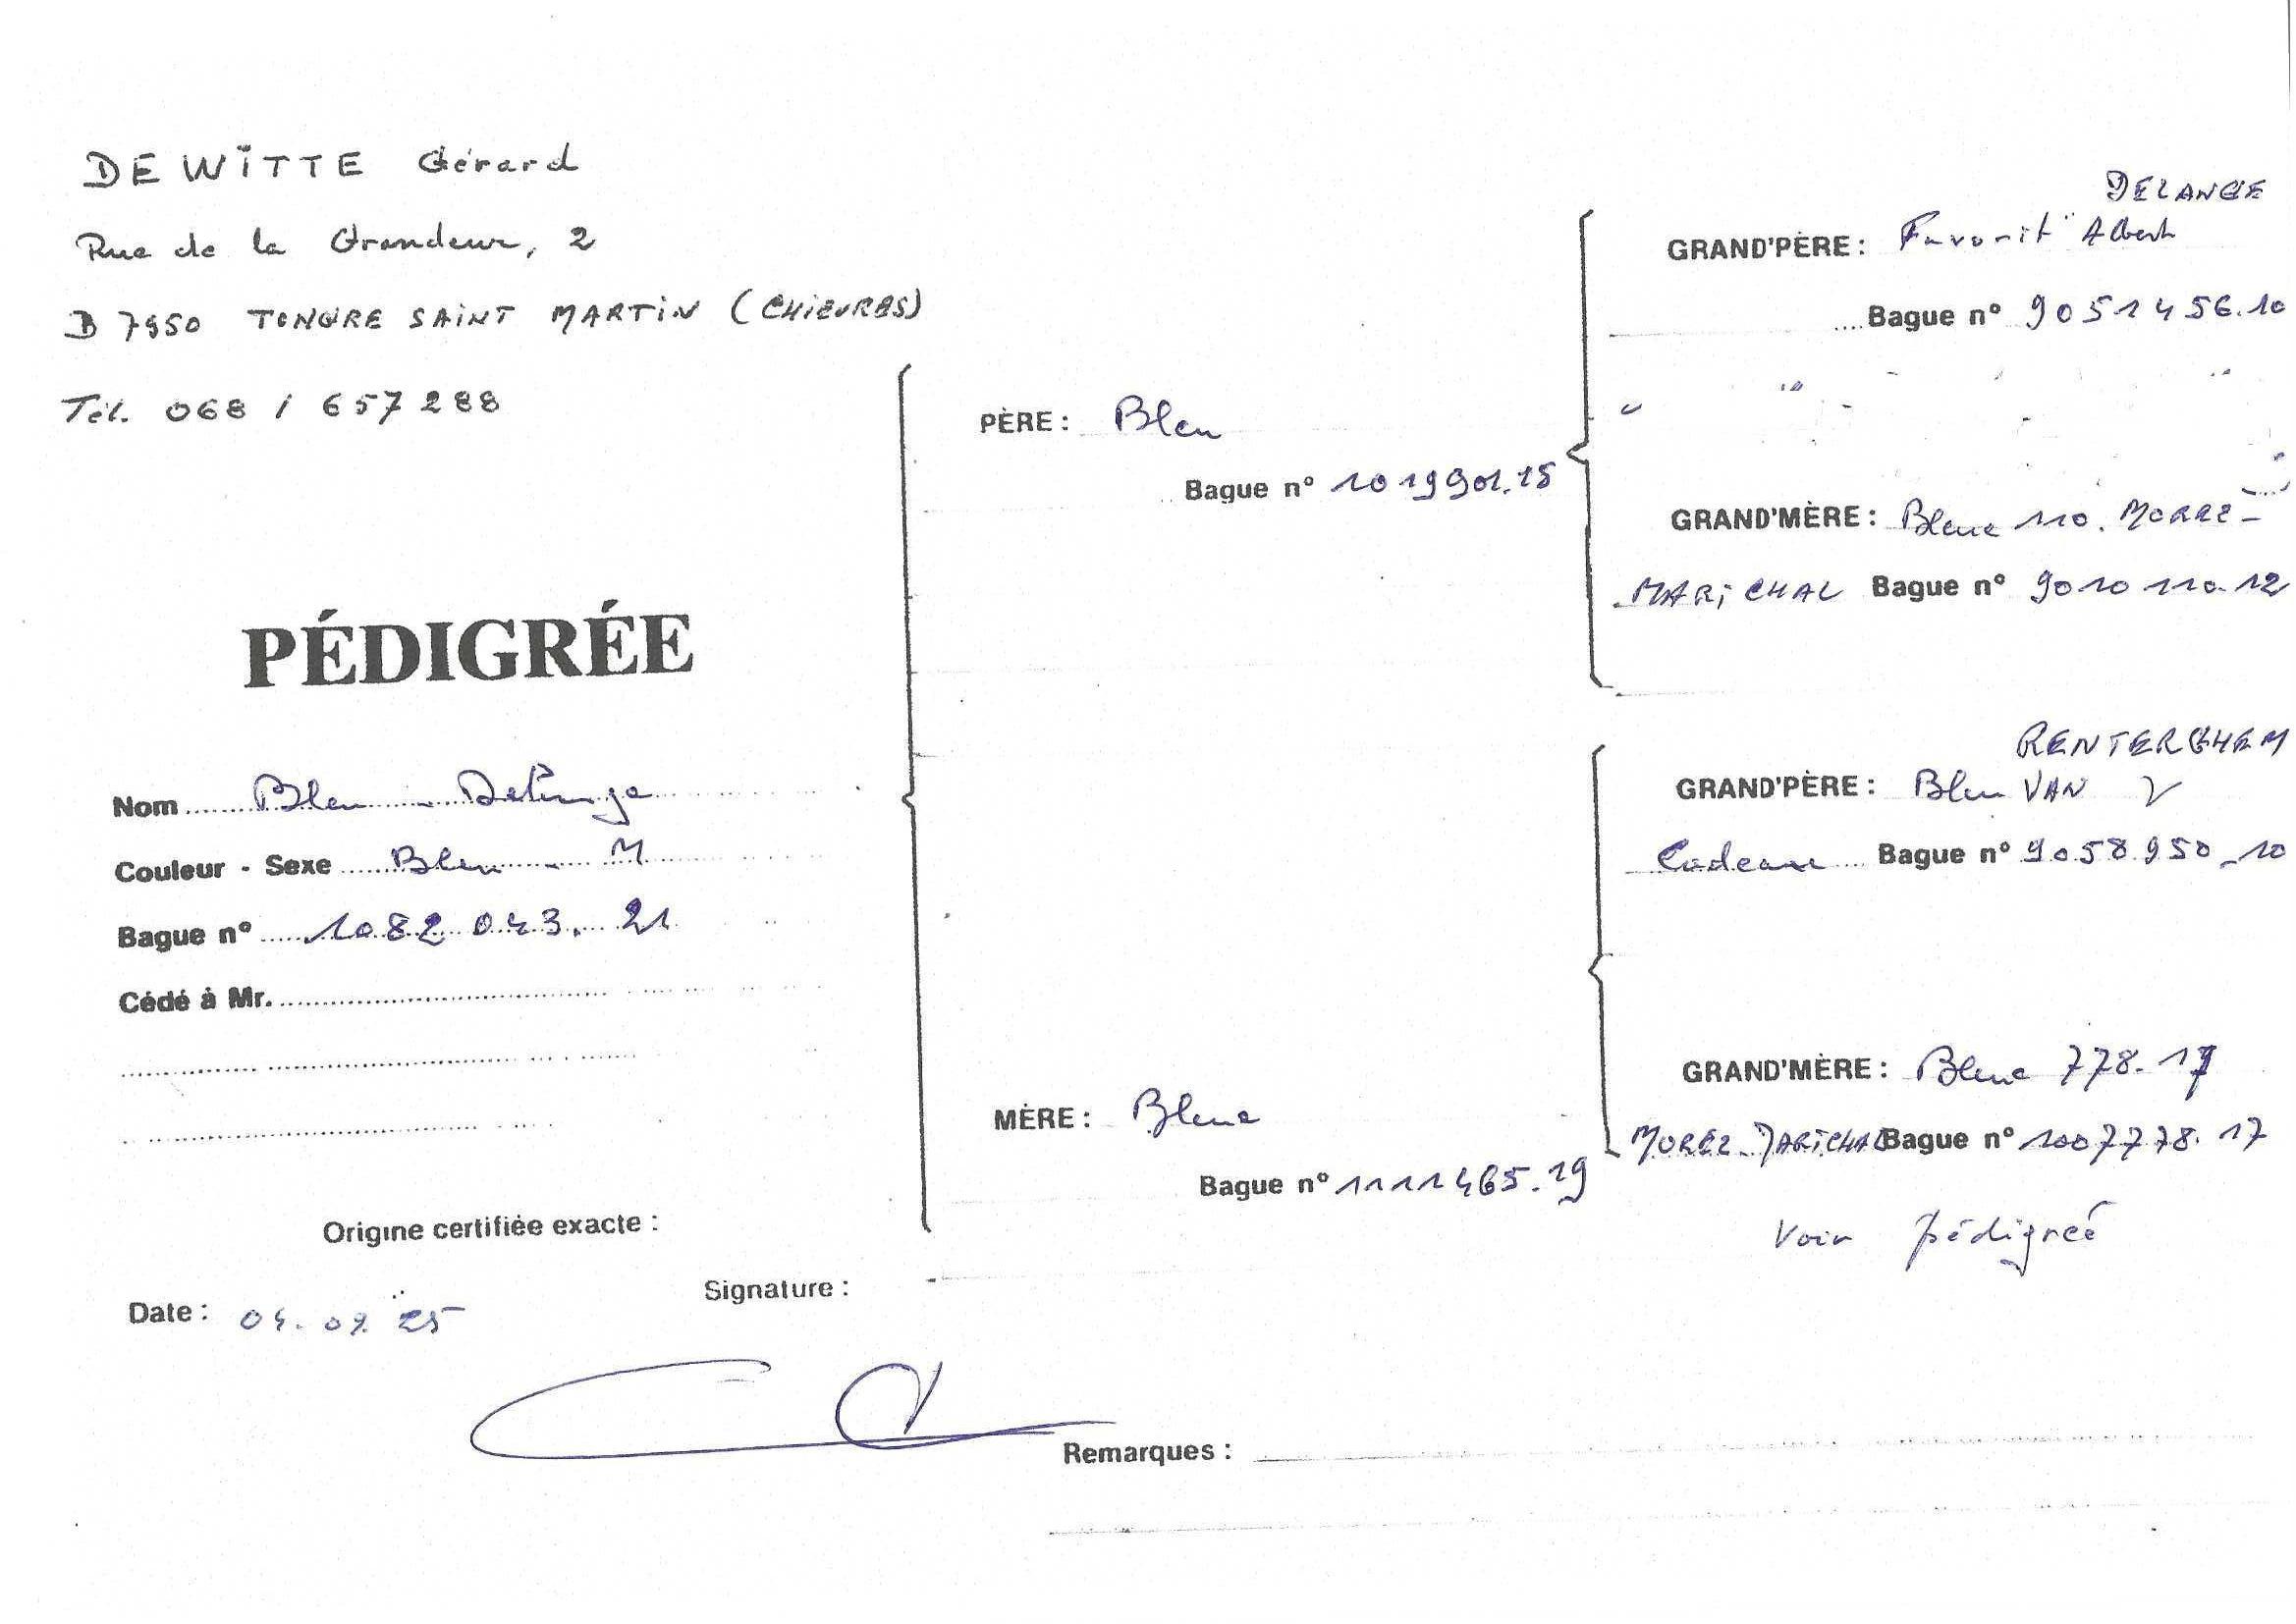 DE WITTE Gérard
Rue de la Grandeur, 2
B 7950 TONGRE SAINT MARTIN (CHIEVRES)
Tél. 068 / 657288
PÉDIGRÉE
Nom Bleu - Delange
Couleur - Sexe Bleu - M
Bague n° 1082 043. 21
Cédé à Mr.
Origine certifiée exacte :
Date : 04. 09. 25
Signature :
PÈRE : Bleu
Bague n° 1019901.15
MÈRE : Bleue
Bague n° 1111465.19
DELANGE
GRAND'PÈRE : Favorit Albert
Bague n° 9051456.10
GRAND'MÈRE : Bleue 110. MOREZ-
MARICHAL Bague n° 9010110.12
RENTERGHEM
GRAND'PÈRE : Bleu VAN
Cadeau Bague n° 9058950.10
GRAND'MÈRE : Bleue 778.17
MOREZ-MARICHAL Bague n° 1007778.17
Voir pédigreé
Remarques :